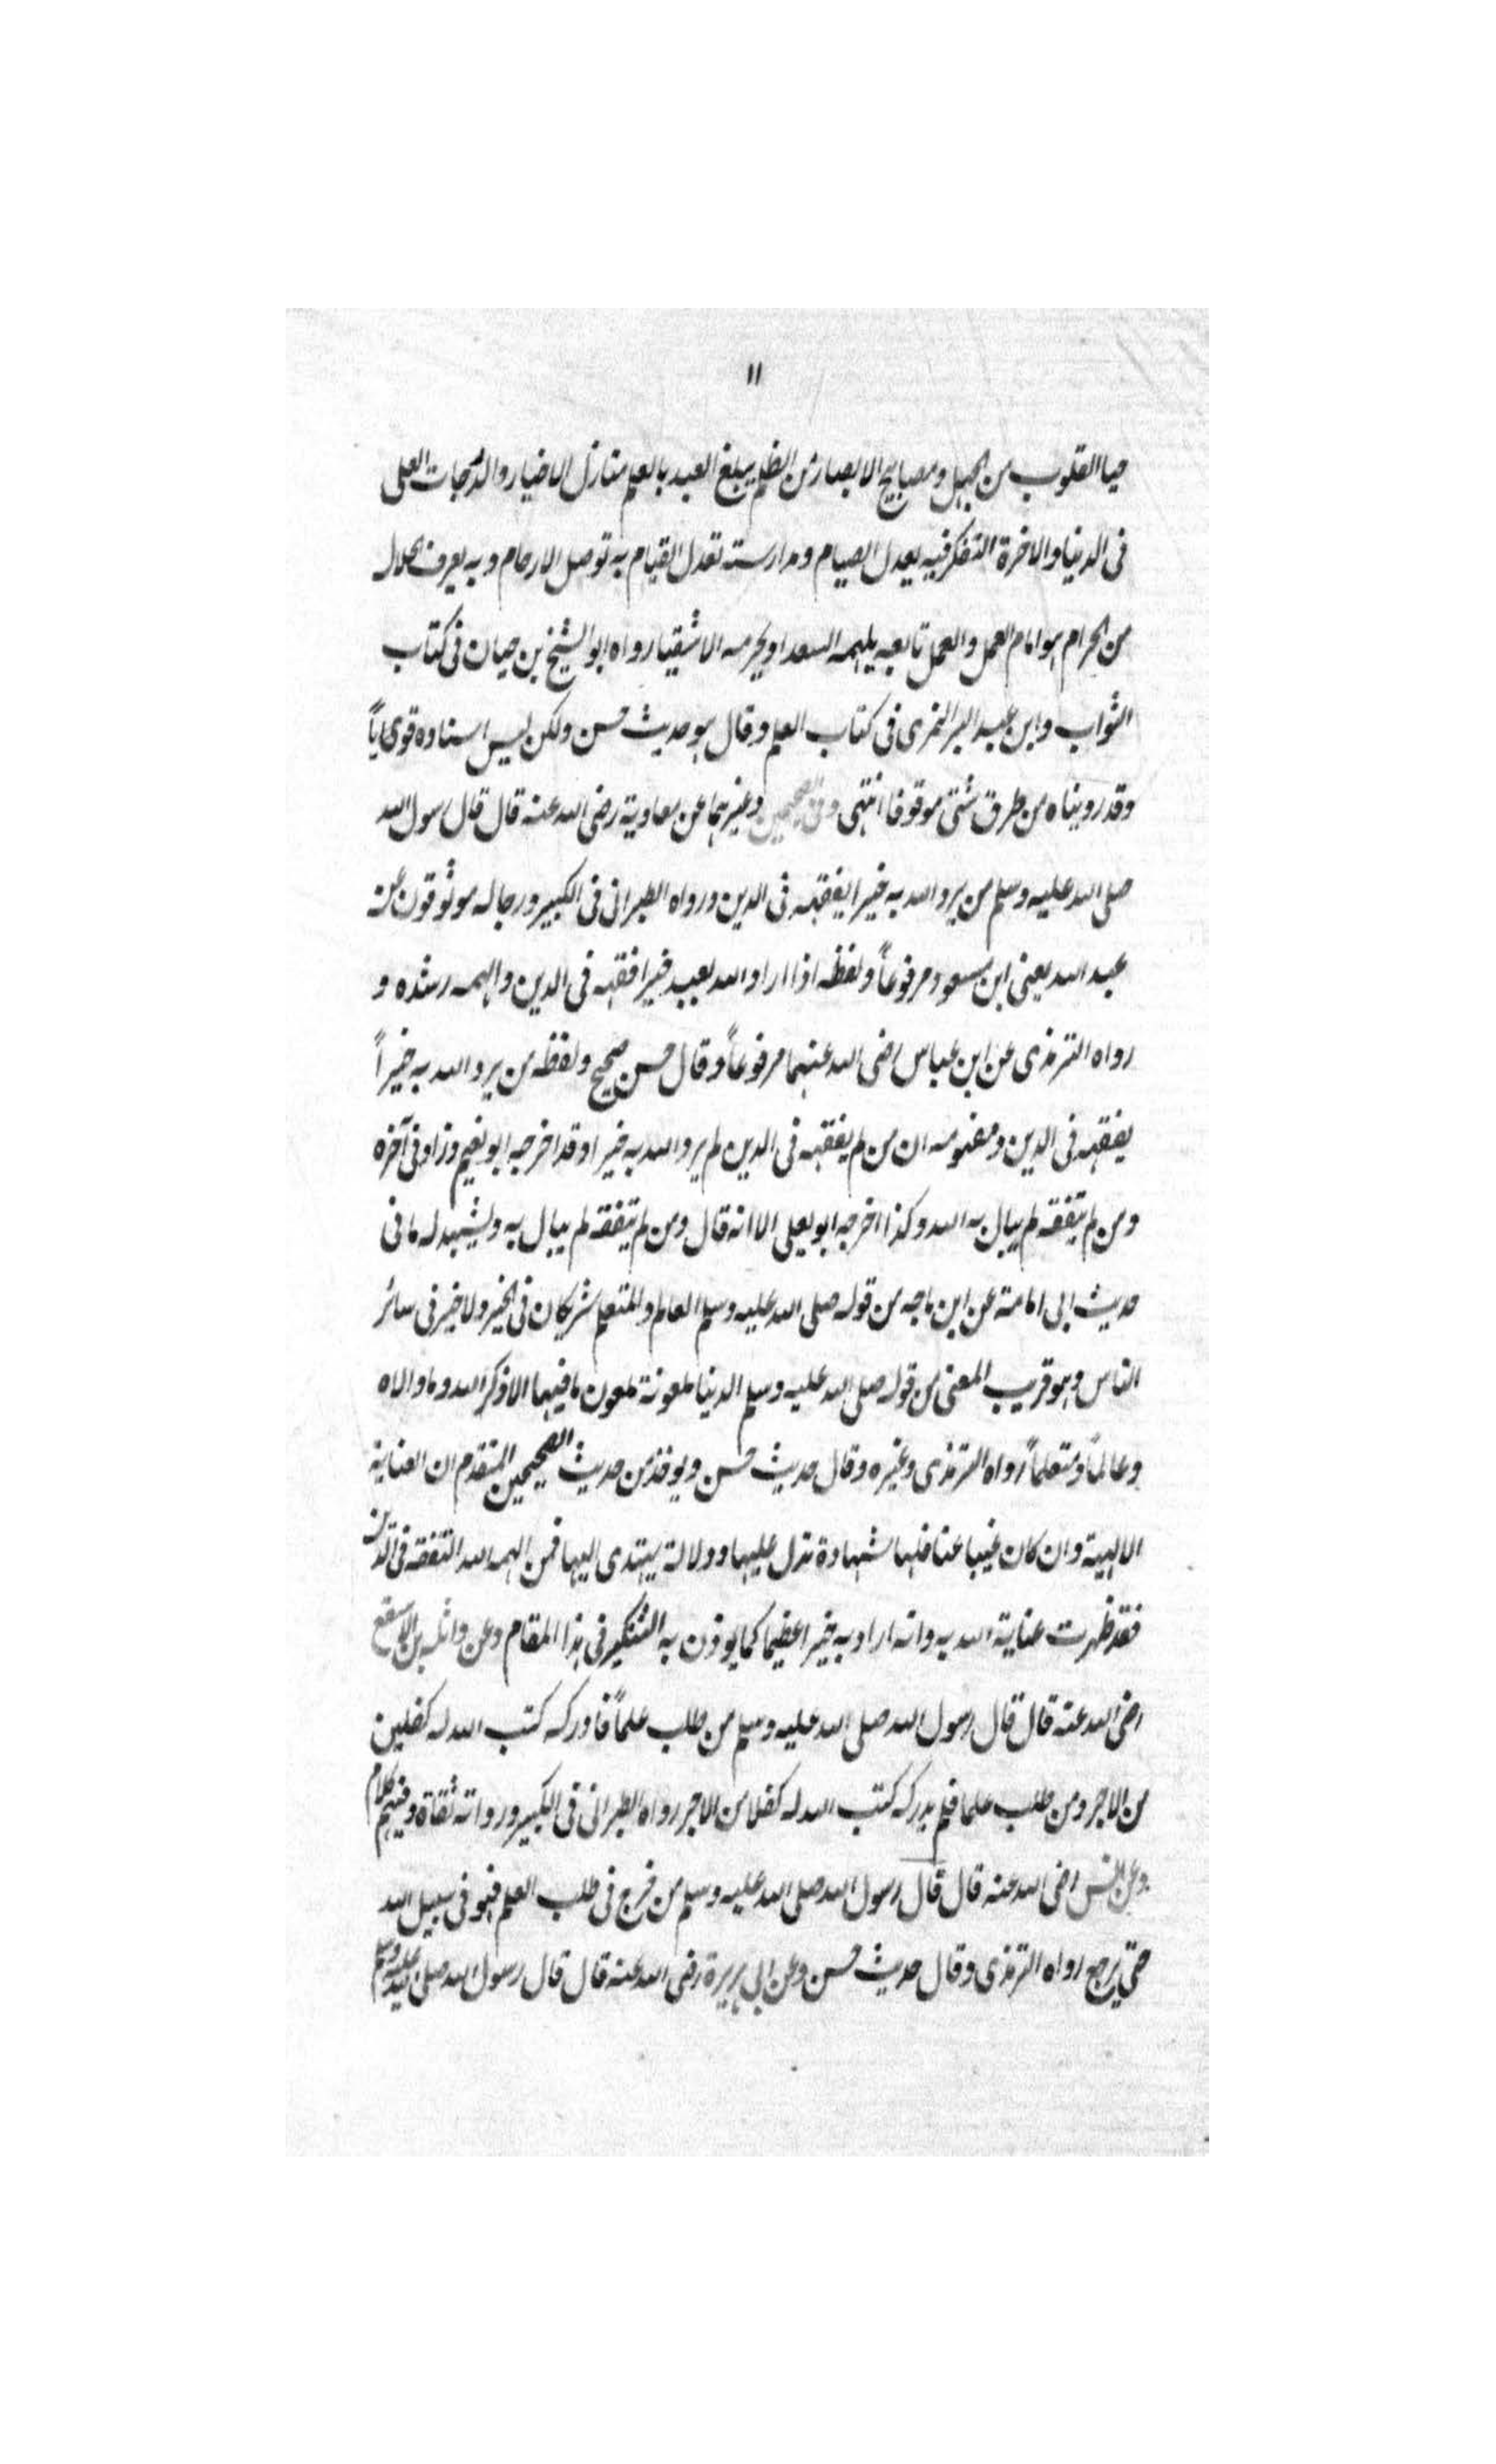 ١١
حياالقلوب من الجهل ومصابيح الابصار من الظلم يبلغ العبد بالعلم منازل الاخيار والدرجات العلى
فى الدنيا والاخرة التفكر فيه يعدل الصيام ومدارسته تعدل القيام به توصل الارحام وبه يعرف الحلال
من الحرام هو امام العمل والعمل تابعه يلهمه السعدا ويحرمه الاشقيا رواه ابو الشيخ بن حيان فى كتاب
الثواب وابن عبد البر النمرى فى كتاب العلم وقال هو حديث حسن ولكن ليس اسناده قوى
وقد رويناه من طرق شتى موقوفا انتهى وفى الصحيحين وغيرهما عن معاوية رضى الله عنه قال قال رسول الله
صلى الله عليه وسلم من يرد الله به خيرا يفقهه فى الدين ورواه الطبرانى فى الكبير ورجاله موثوقون عن
عبد الله يعنى ابن مسعود مرفوعاً ولفظه اذا اراد الله بعبد خيرا فقهه فى الدين والهمه رشده و
رواه الترمذى عن ابن عباس رضى الله عنهما مرفوعاً وقال حسن صحيح ولفظه من يرد الله به خيراً
يفقهه فى الدين ومفهومه ان من لم يفقهه فى الدين لم يرد الله به خيرا وقد اخرجه ابو نعيم وزاد فى آخره
ومن لم يتفقه لم يبال به الله وكذا اخرجه ابو يعلى الا انه قال ومن لم يتفقه لم يبال به ويشهد له ما فى
حديث ابى امامة عن ابن ماجه من قوله صلى الله عليه وسلم العالم والمتعلم شريكان فى الخير ولا خير فى سائر
الناس وهو قريب المعنى من قوله صلى الله عليه وسلم الدنيا ملعونة ملعون ما فيها الا ذكر الله وما والاه
وعالماً ومتعلماً رواه الترمذى وغيره وقال حديث حسن ويوخذ من حديث الصحيحين المتقدم ان العناية
الالهية وان كان غيبا عنا فلها شهادة تدل عليها ودلالة يهتدى اليها فمن الهمه الله التفقه فى الدين
فقد ظهرت عناية الله به وانه اراد به خيرا عظيما كما يوذن به التنكير فى هذا المقام وعن واثلة بن الاسقع
رضى الله عنه قال قال رسول الله صلى الله عليه وسلم من طلب علماً فادركه كتب الله له كفلين
من الاجر ومن طلب علما فلم يدركه كتب الله له كفلا من الاجر رواه الطبرانى فى الكبير ورواته ثقاة وفيهم كلام
وعن انس رضى الله عنه قال قال رسول الله صلى الله عليه وسلم من خرج فى طلب العلم فهو فى سبيل الله
حتى يرجع رواه الترمذى وقال حديث حسن وعن ابى هريرة رضى الله عنه قال قال رسول الله صلى الله عليه وسلم